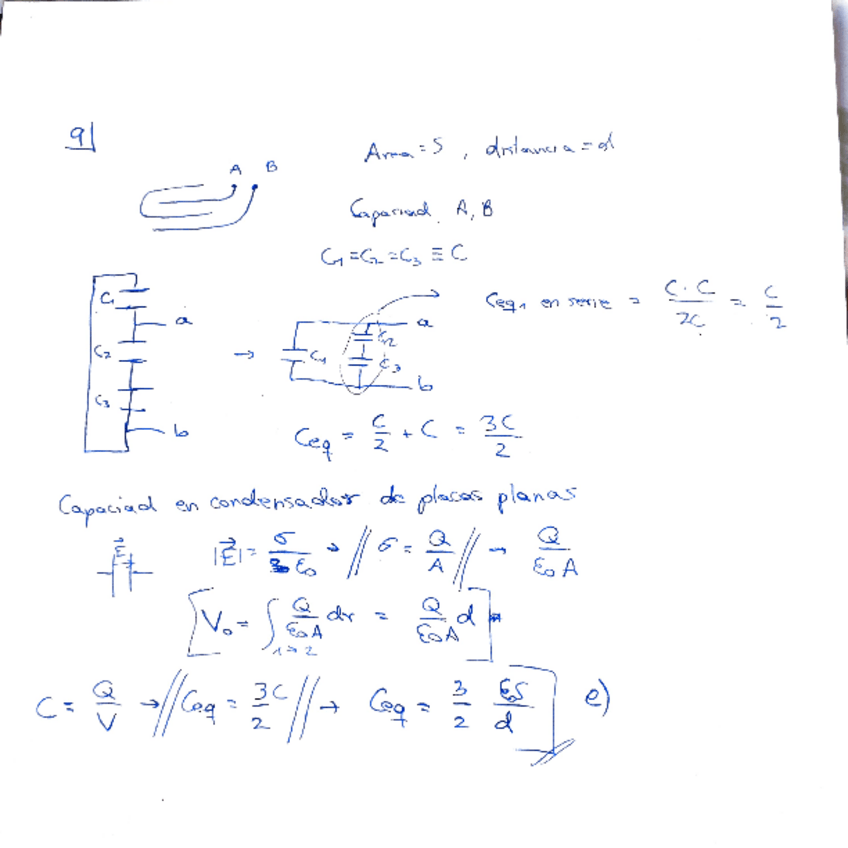 9|
Area = S , distancia = d
A B
Capaciad A, B
C₁ = C₂ = C₃ ≡ C
C₁
a
C₂
C₃
b
→ C₁ C₂ C₃ a b
Ceq₁ en serie = C·C / 2C = C / 2
Ceq = C/2 + C = 3C/2
Capaciad en condensador de placas planas
E⃗
|E⃗| = σ/ε₀ → // σ = Q/A // → Q/ε₀A
[V₀ = ∫₁→₂ Q/ε₀A dr = Q/ε₀A d]
C = Q/V → // Ceq = 3C/2 // → Ceq = 3/2 ε₀S/d ] e)